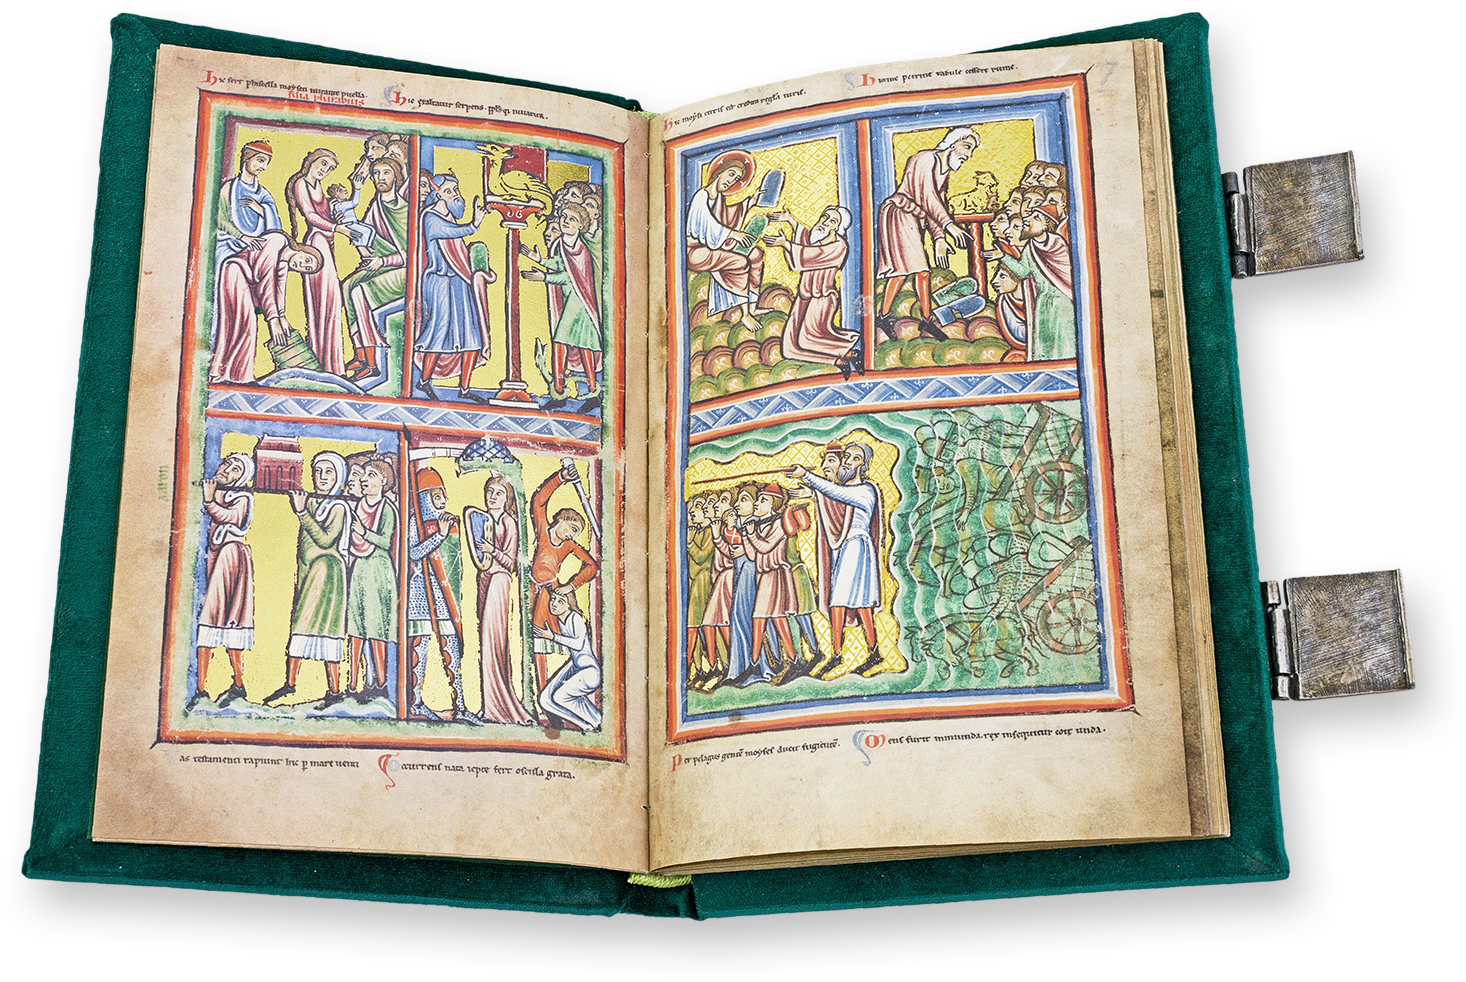 hic fert phiscella moysen mirante puella.
filia pharaonis
hic exaltatur serpens.
as testamenti rapiunt hic p mare uenti
Occurrens nata iepte fert oscula grata.
hic moysi curis est credita regula iuris.
hi ruine petrine tabule cessere ruine.
7
Per pelagus gentē moyses ducit fugientē.
Mens furit inmunda. rex insequitur coit unda.